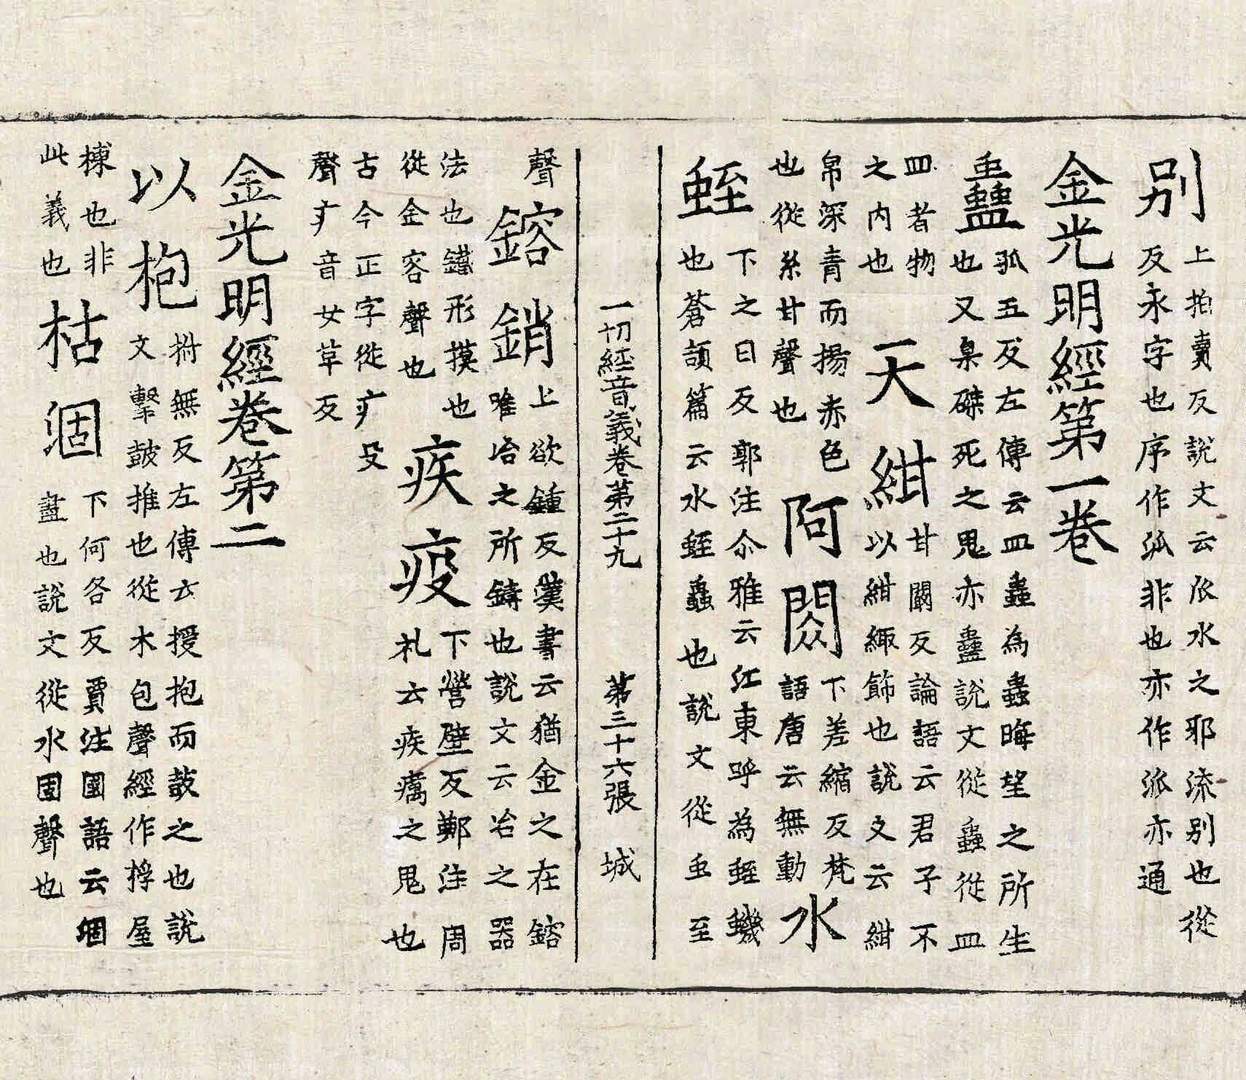 別上拍賣反說文云𠂢水之耶流别也從反永字也序作泒非也亦作派亦通
金光明經第一卷
蠱孤五反左傳云皿蟲為蠱晦望之所生也又梟磔死之鬼亦蠱說文從蟲從皿
皿者物之内也天紺甘闞反論語云君子不以紺緅飾也說文云紺
帛深青而揚赤色也從糸甘聲也阿閦下差縮反梵語唐云無動水
蛭下之日反郭注尒雅云江東呼為蛭蟣也蒼頡篇云水蛭蟲也說文從虫至
一切經音義卷第二十九 第三十六張 城
聲鎔銷上欲鍾反漢書云猶金之在鎔唯冶之所鑄也說文云冶之器
法也鐵形摸也從金容聲也疾疫下營壁反鄭注周礼云疾癘之鬼也
古今正字從疒殳聲疒音女草反
金光明經卷第二
以枹拊無反左傳云授抱而鼓之也說文擊鼓推也從木包聲經作桴屋
棟也非此義也枯涸下何各反賈注國語云涸盡也說文從水固聲也